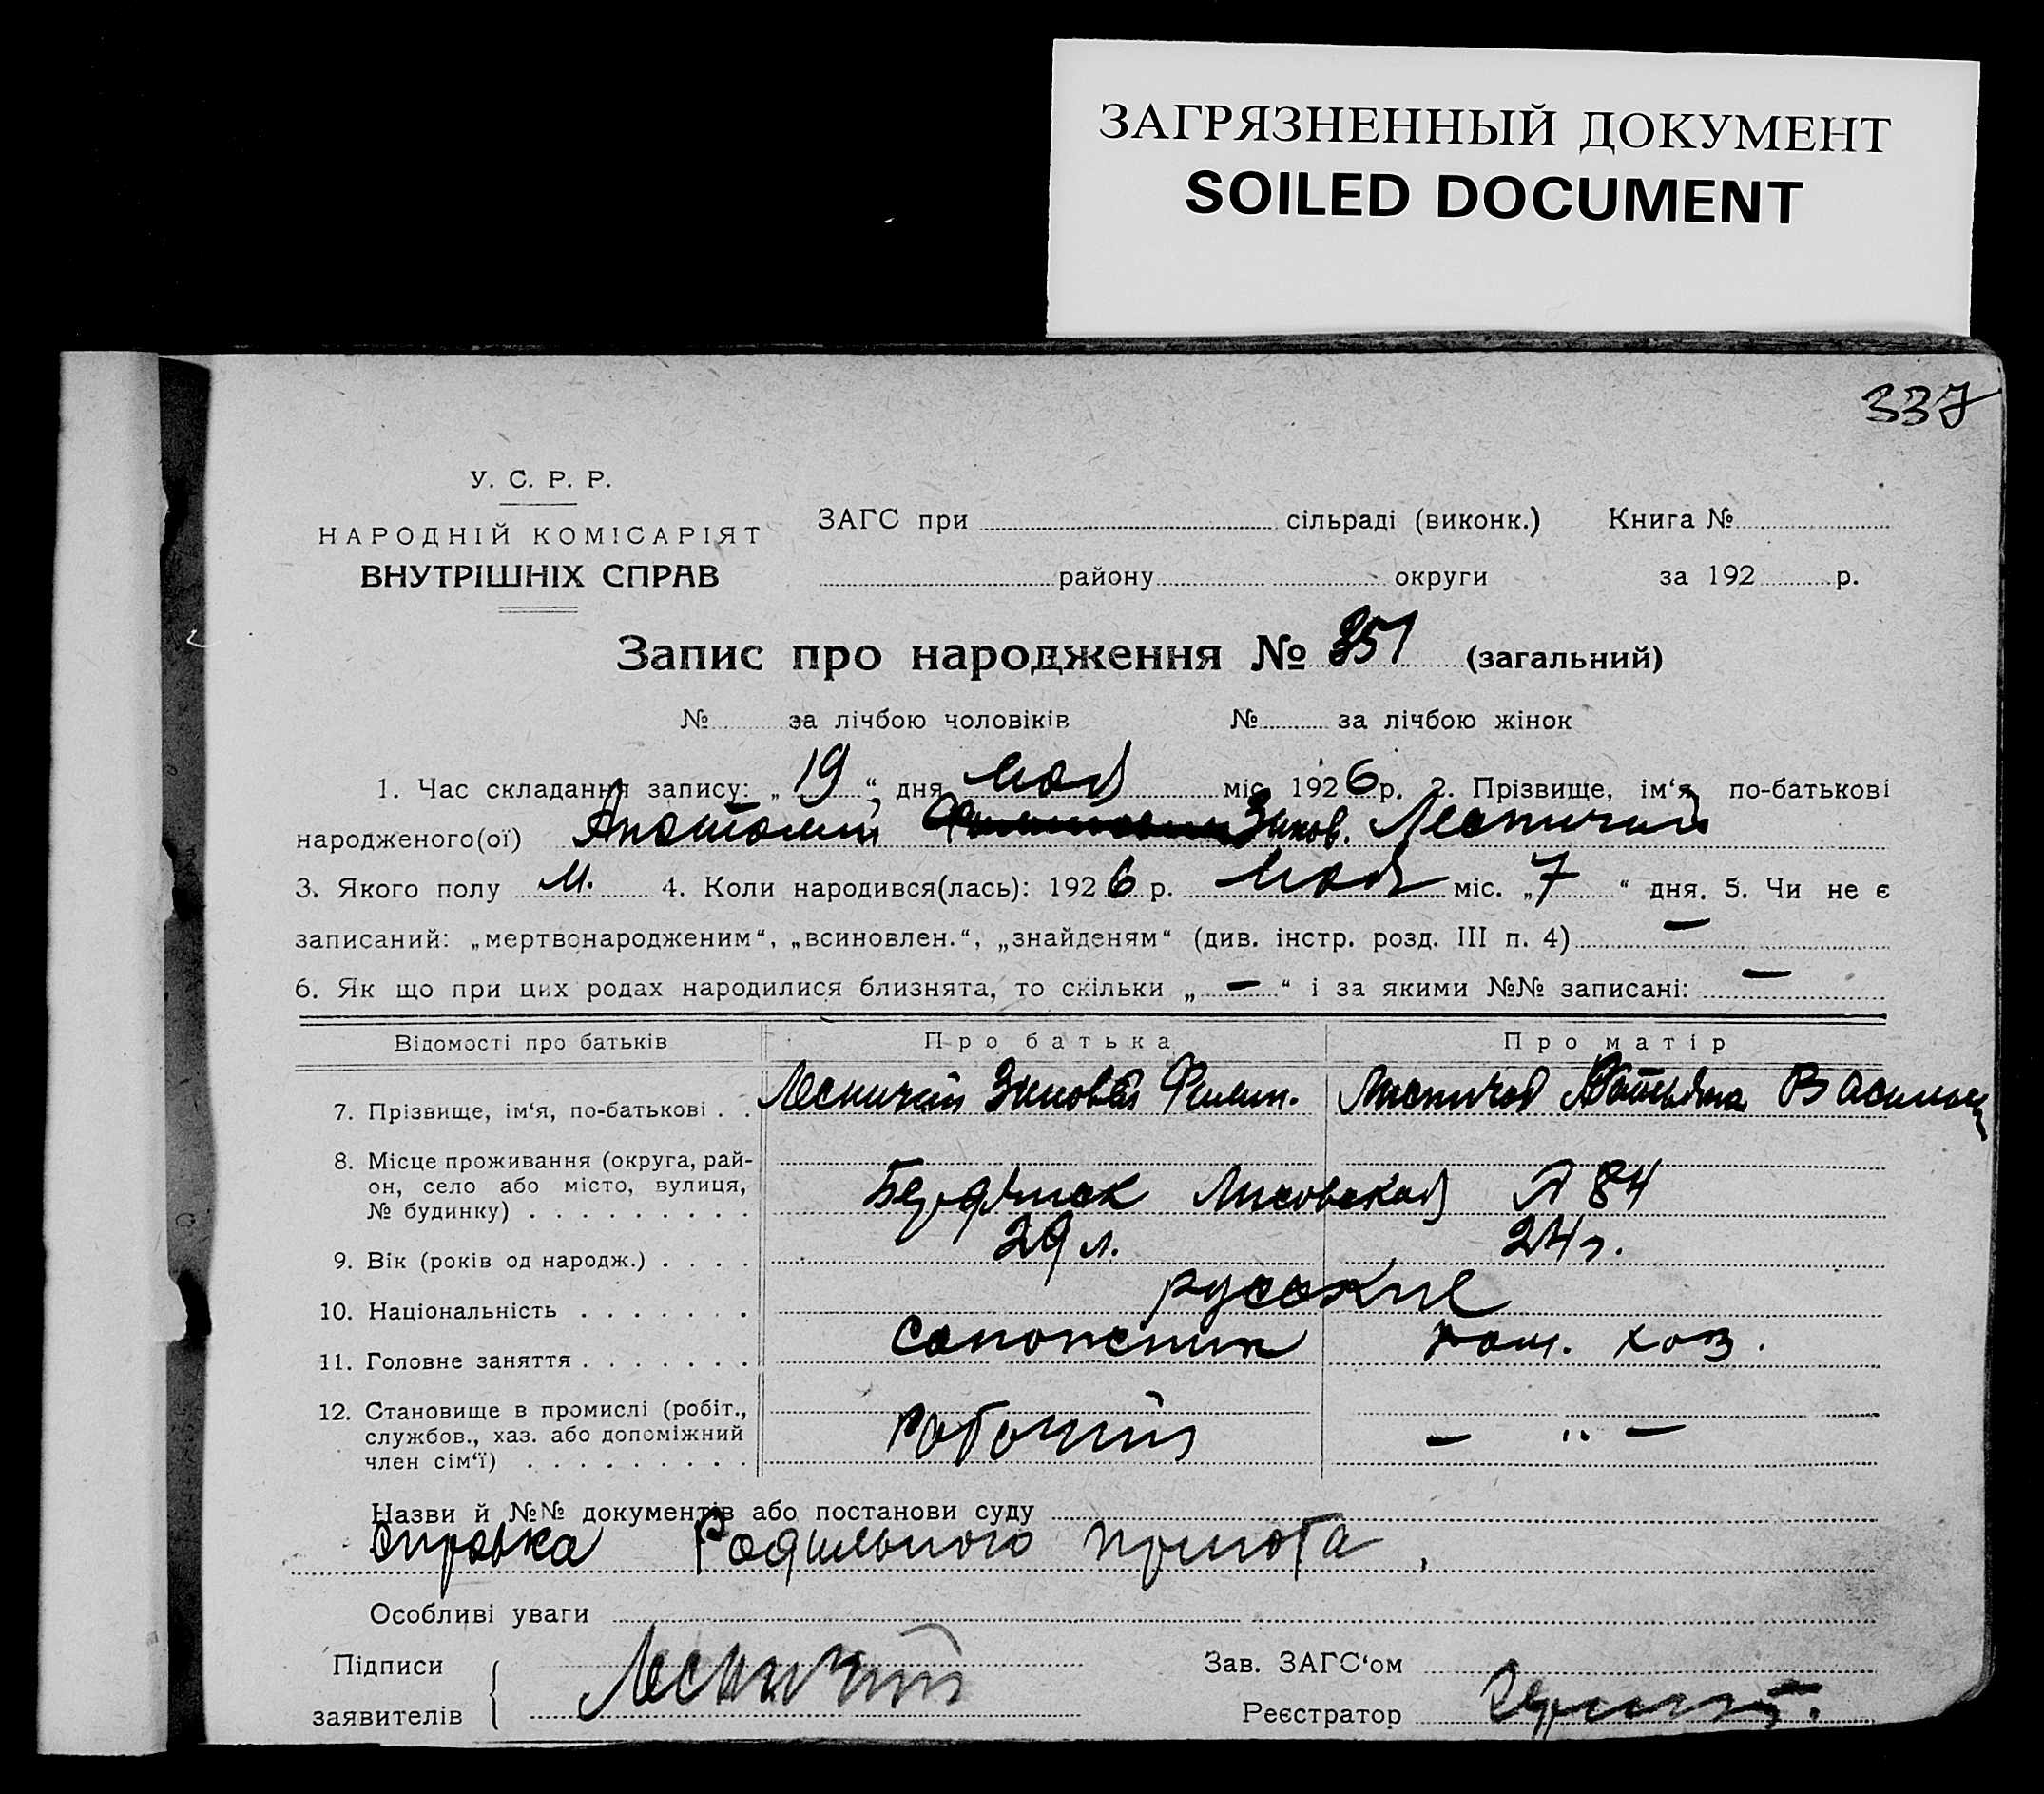 ЗАГРЯЗНЕННЫЙ ДОКУМЕНТ
SOILED DOCUMENT
337
У. С. Р. Р.
НАРОДНІЙ КОМІСАРІЯТ
ВНУТРІШНІХ СПРАВ
ЗАГС при сільраді (виконк.) Книга №
району округи за 192 р.
Запис про народження № 351 (загальний)
№ за лічбою чоловіків № за лічбою жінок
1. Час складання запису: „ 19 “ дня мая міс. 1926 р. 2. Прізвище, ім‘я, по-батькові
народженого(ої) Анатолий Зинов. Лесничий
3. Якого полу м. 4. Коли народився(лась): 1926 р. мая міс. „ 7 “ дня. 5. Чи не є
записаний: „мертвонародженим“, „всиновлен.“, „знайденям“ (див. інстр. розд. III п. 4) —
6. Як що при цих родах народилися близнята, то скільки „ — “ і за якими №№ записані: —
Відомості про батьків Про батька Про матір
7. Прізвище, ім‘я, по-батькові . . Лесничий Зиновий Филип. Лисничая Татьяна Васильев
8. Місце проживання (округа, рай-
он, село або місто, вулиця,
№ будинку) . . . . . . . . . Бердичев Лысовская 84
9. Вік (років од народж.) . . . . 29 л. 24 г.
10. Національність . . . . . . . русские
11. Головне заняття . . . . . . . сапожник дом. хоз.
12. Становище в промислі (робіт.,
службов., хаз. або допоміжний
член сім‘ї) . . . . . . . . . рабочий — „ —
Назви й №№ документів або постанови суду
справка Родильного приюта,
Особливі уваги
Підписи Лесничий Зав. ЗАГС‘ом
заявителів Реєстратор